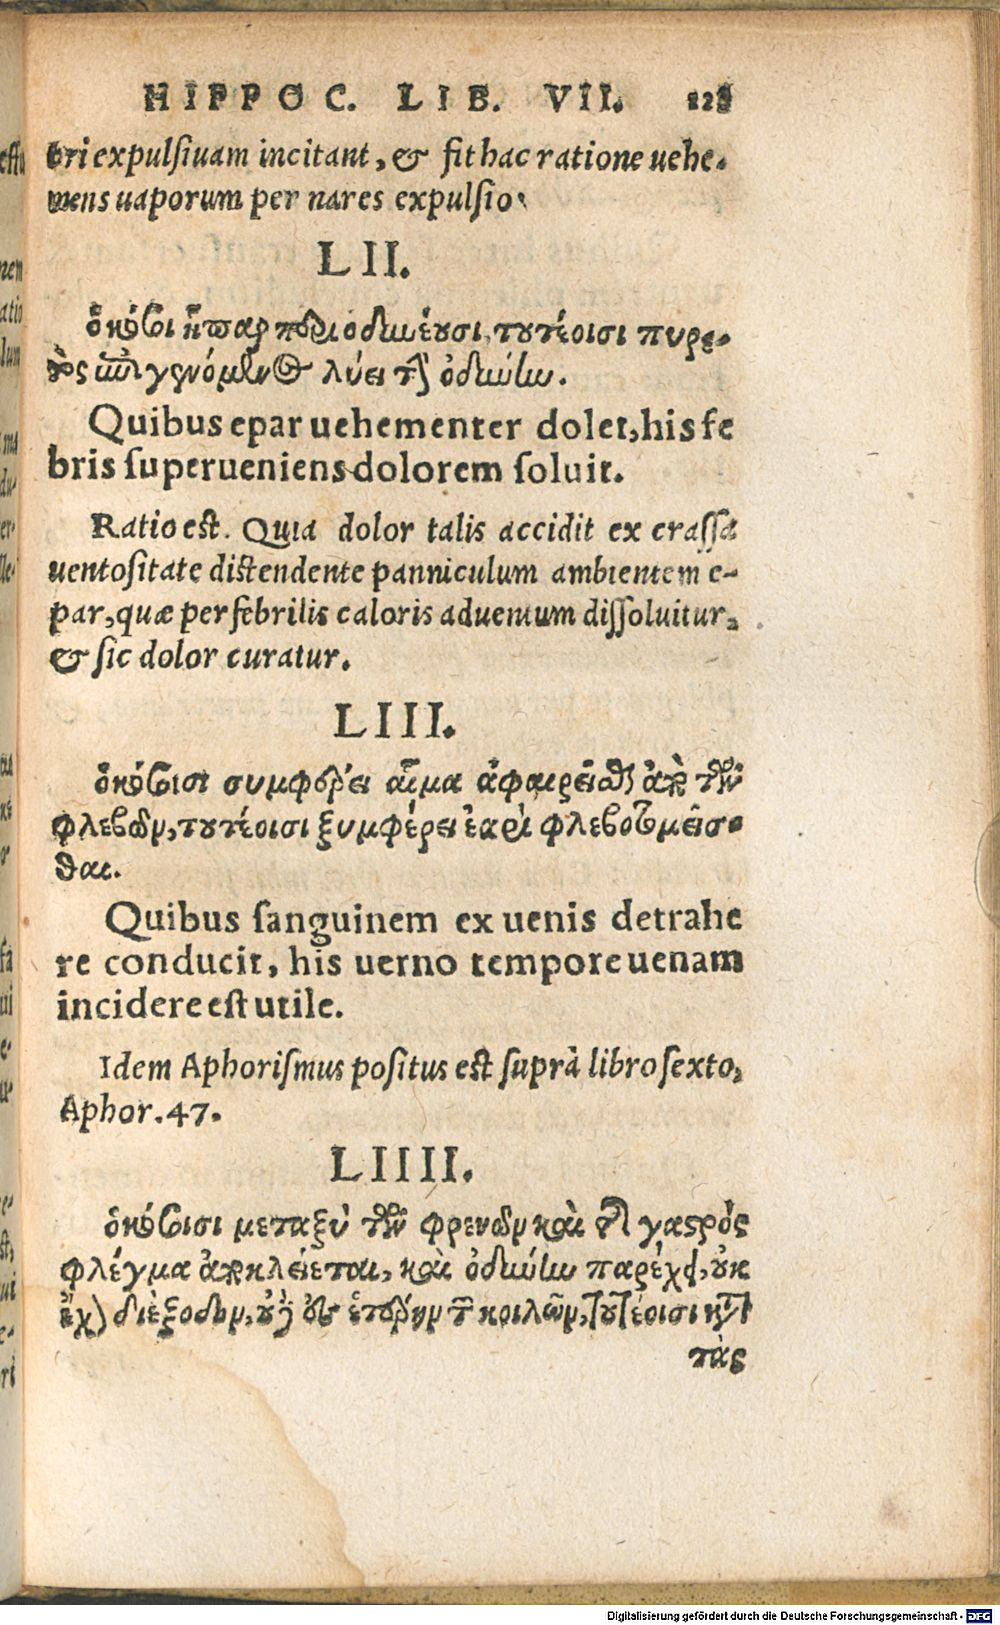 HIPPOC. LIB. VII.
bri expulſiuam incitant, & fit hac ratione uehe-
mens uaporum per nares expulſio.
LII.
ὁκόσοι ἧπαρ περιοδυνέουσι, τουτέοισι πυρε-
τὸς ἐπιγενόμενος λύει τὴν ὀδύνην.
Quibus epar uehementer dolet, his fe
bris ſuperueniens dolorem ſoluit.
Ratio eſt. Quia dolor talis accidit ex craſſa
uentoſitate diſtendente panniculum ambientem e-
par, quæ per febrilis caloris aduentum diſſoluitur,
& ſic dolor curatur.
LIII.
ὁκόσοισι συμφέρει αἷμα ἀφαιρεῖσθαι ἀπὸ τῶν
φλεβῶν, τουτέοισι ξυμφέρει ἔαρι φλεβοτομεῖσ-
θαι.
Quibus ſanguinem ex uenis detrahe
re conducit, his uerno tempore uenam
incidere eſt utile.
Idem Aphoriſmus poſitus eſt ſuprà libro ſexto,
Aphor. 47.
LIIII.
ὁκόσοισι μεταξὺ τῶν φρενῶν καὶ τῆς γαστρὸς
φλέγμα ἀποκλείεται, καὶ ὀδύνην παρέχει, οὐκ
ἔχον διέξοδον, οὐδὲ ἐς ἑτέρην τῶν κοιλιῶν, τουτέοισι κατὰ
τὰς
Digitalisierung gefördert durch die Deutsche Forschungsgemeinschaft - DFG